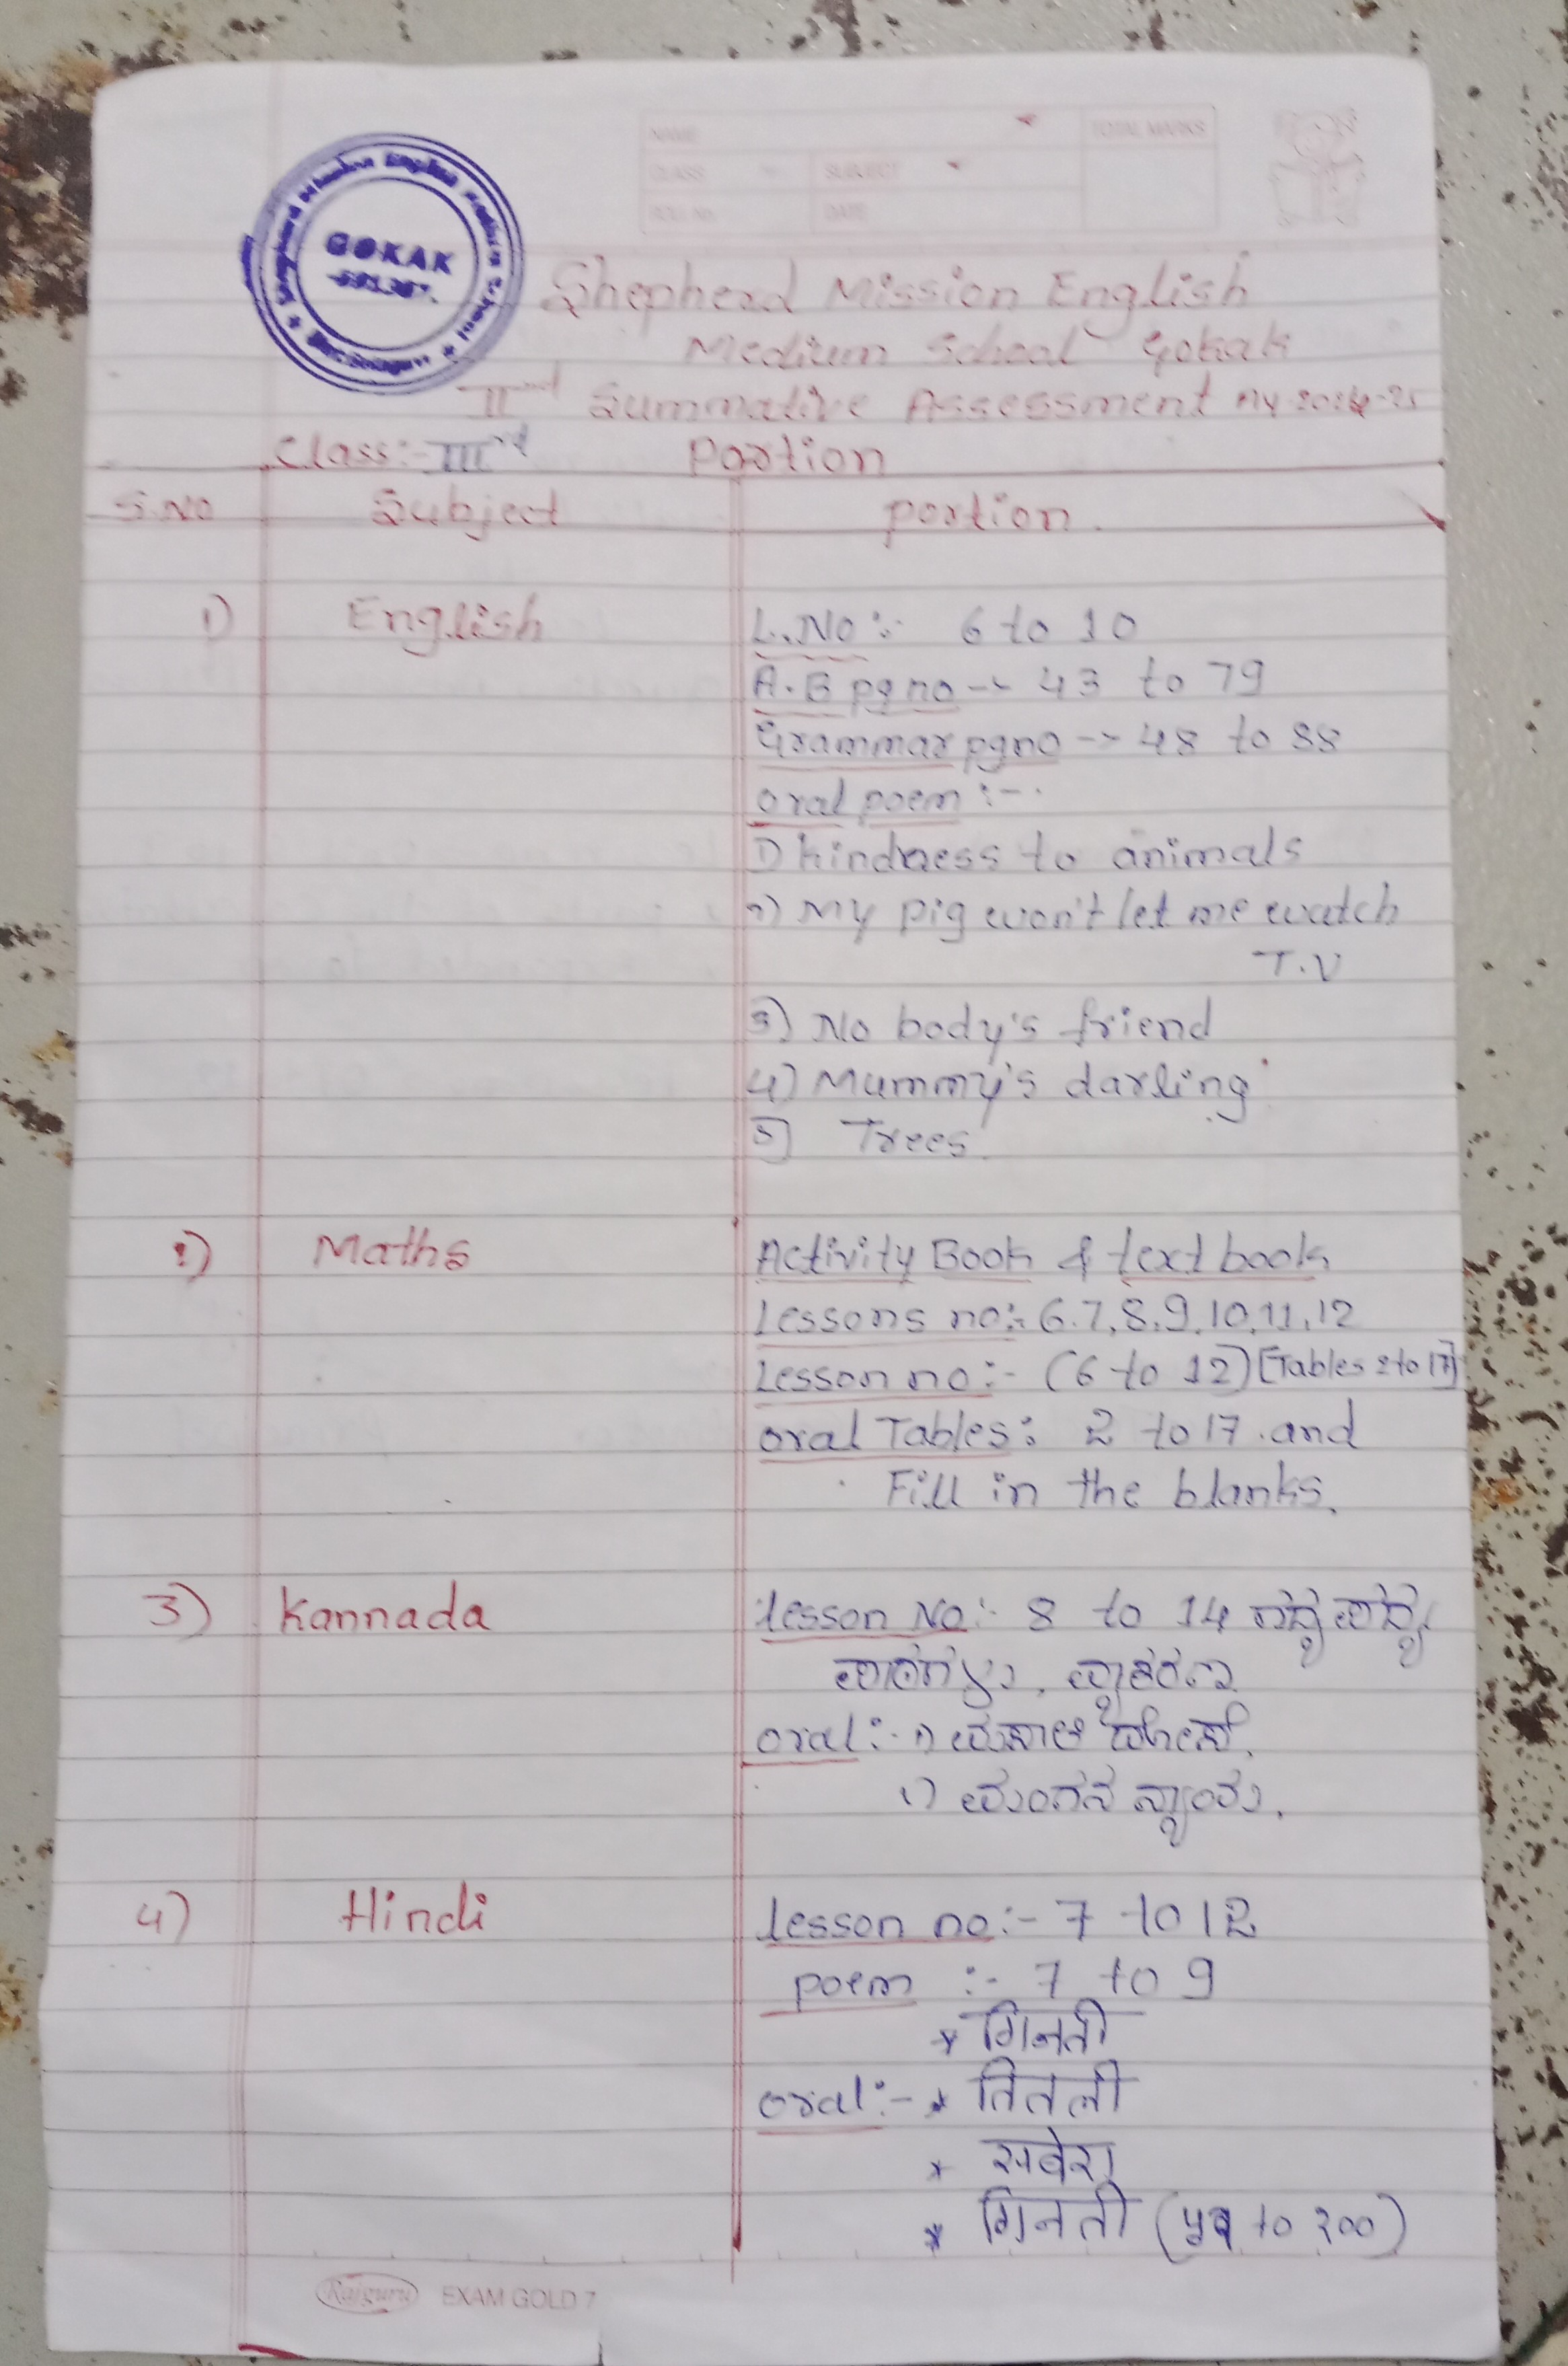 NAME
TOTAL MARKS
CLASS
SUBJECT
ROLL No.
DATE
English Medium School
GOKAK
Shepherd Mission English
Medium School Gokak
IInd Summative Assessment Ay 2024-25
Class:- IIIrd Portion
S.NO Subject portion.
1) English L.NO :- 6 to 10
A.B pg no -> 43 to 79
Grammar pgno -> 48 to 88
oral poem :-
1) kindness to animals
2) My pig won't let me watch
T.V
3) No body's friend
4) Mummy's darling
5) Trees.
2) Maths Activity Book & text book
Lessons no:- 6.7,8,9,10,11,12
Lesson no:- (6 to 12) [Tables 2 to 17]
oral Tables: 2 to 17 and
Fill in the blanks.
3) Kannada lesson No:- 8 to 14 ಗದ್ಯ ಪದ್ಯ
ಪಾಠಗಳು, ವ್ಯಾಕರಣ
oral :- 1)
ಮಂಗನ
4) Hindi lesson no:- 7 to 12
poem :- 7 to 9
* गिनती
oral:- * तितली
* सवेरा
* गिनती (५१ to १००)
Rajguru EXAM GOLD 7